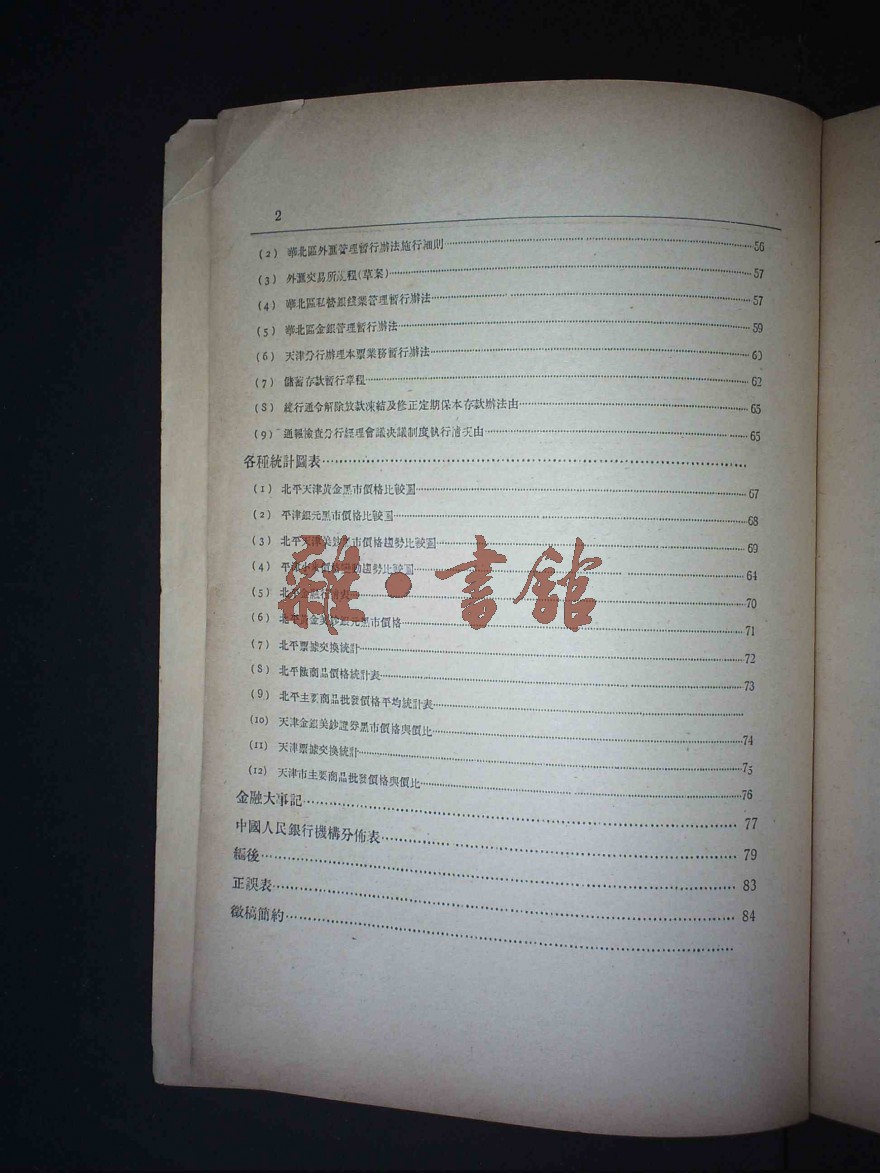 2
(2) 華北區外匯管理暫行辦法施行細則 56
(3) 外匯交易所規程(草案) 57
(4) 華北區私營銀錢業管理暫行辦法 57
(5) 華北區金銀管理暫行辦法 59
(6) 天津分行辦理本票業務暫行辦法 60
(7) 儲蓄存款暫行章程 62
(8) 總行通令解除放款凍結及修正定期保本存款辦法由 65
(9) 通報檢查分行經理會議決議制度執行情況由 65
各種統計圖表
(1) 北平天津黃金黑市價格比較圖 67
(2) 平津銀元黑市價格比較圖 68
(3) 北平天津美鈔黑市價格趨勢比較圖 69
(4) 平津小米價格 動趨勢比較圖 64
(5) 北平金融行情表 70
(6) 北平黃金美鈔銀元黑市價格 71
(7) 北平票據交換統計 72
(8) 北平 商品價格統計表 73
(9) 北平主要商品批發價格平均統計表
(10) 天津金銀美鈔證券黑市價格與價比 74
(11) 天津票據交換統計 75
(12) 天津市主要商品批發價格與價比 76
金融大事記 77
中國人民銀行機構分佈表 79
編後 83
正誤表 84
徵稿簡約
雜·書館